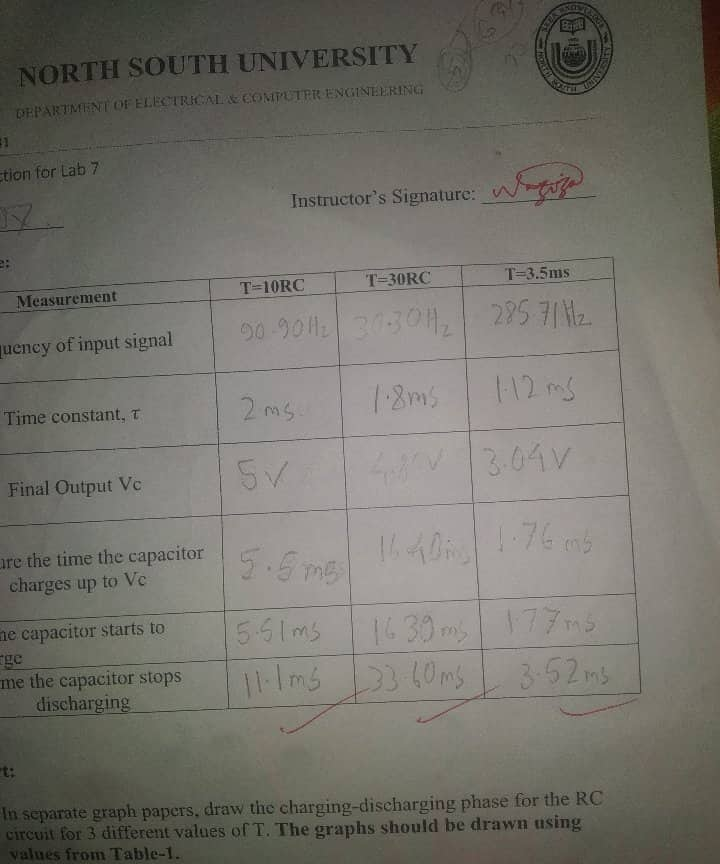 NORTH SOUTH UNIVERSITY
DEPARTMENT OF ELECTRICAL & COMPUTER ENGINEERING
ction for Lab 7
Instructor's Signature:
e:
Measurement T=10RC T=30RC T=3.5ms
quency of input signal 90.90Hz 30.30Hz 285.71Hz
Time constant, τ 2ms 1.8ms 1.12ms
Final Output Vc 5V 3.04V
are the time the capacitor
charges up to Vc 5.5ms 16.40ms 1.76ms
he capacitor starts to
rge 5.51ms 16.39ms 1.77ms
me the capacitor stops
discharging 11.1ms 33.60ms 3.52ms
rt:
In separate graph papers, draw the charging-discharging phase for the RC
circuit for 3 different values of T. The graphs should be drawn using
values from Table-1.